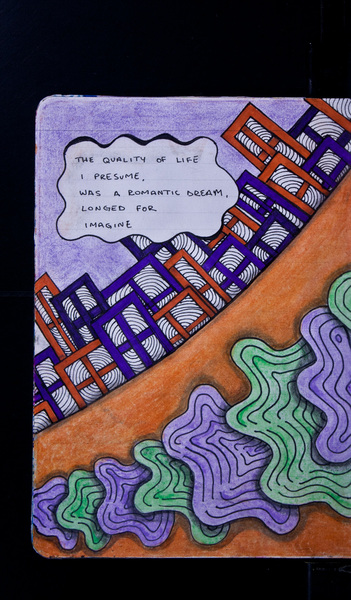 THE QUALITY OF LIFE
I PRESUME,
WAS A ROMANTIC DREAM,
LONGED FOR
IMAGINE